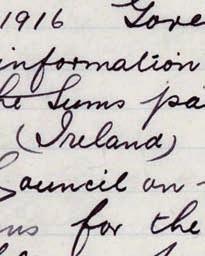 1916 Gove
information
he Sums pa
(Ireland)
Council on
ns for the